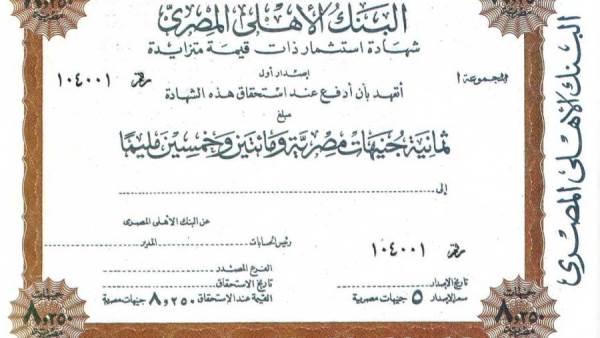 البنك الأهلى المصرى
شهادة استثمار ذات قيمة متزايدة
إصدار أول
المجموعة ا
رقم ١٠٤٠٠١
أتعهد بأن أدفع عند استحقاق هذه الشهادة
مبلغ
ثمانية جنيهات مصرية ومائتين وخمسين مليمًا
إلى
عن البنك الأهلى المصرى
رئيس الحسابات المدير
رقم ١٠٤٠٠١
الفرع المصدر
تاريخ الإصدار تاريخ الاستحقاق
سعر الإصدار ٥ جنيهات مصرية القيمة عند الاستحقاق ٨٫٢٥٠ جنيهات مصرية
جنيهات
٨٫٢٥٠
مصرية
جنيهات
٨٫٢٥٠
مصرية
البنك الأهلى المصرى